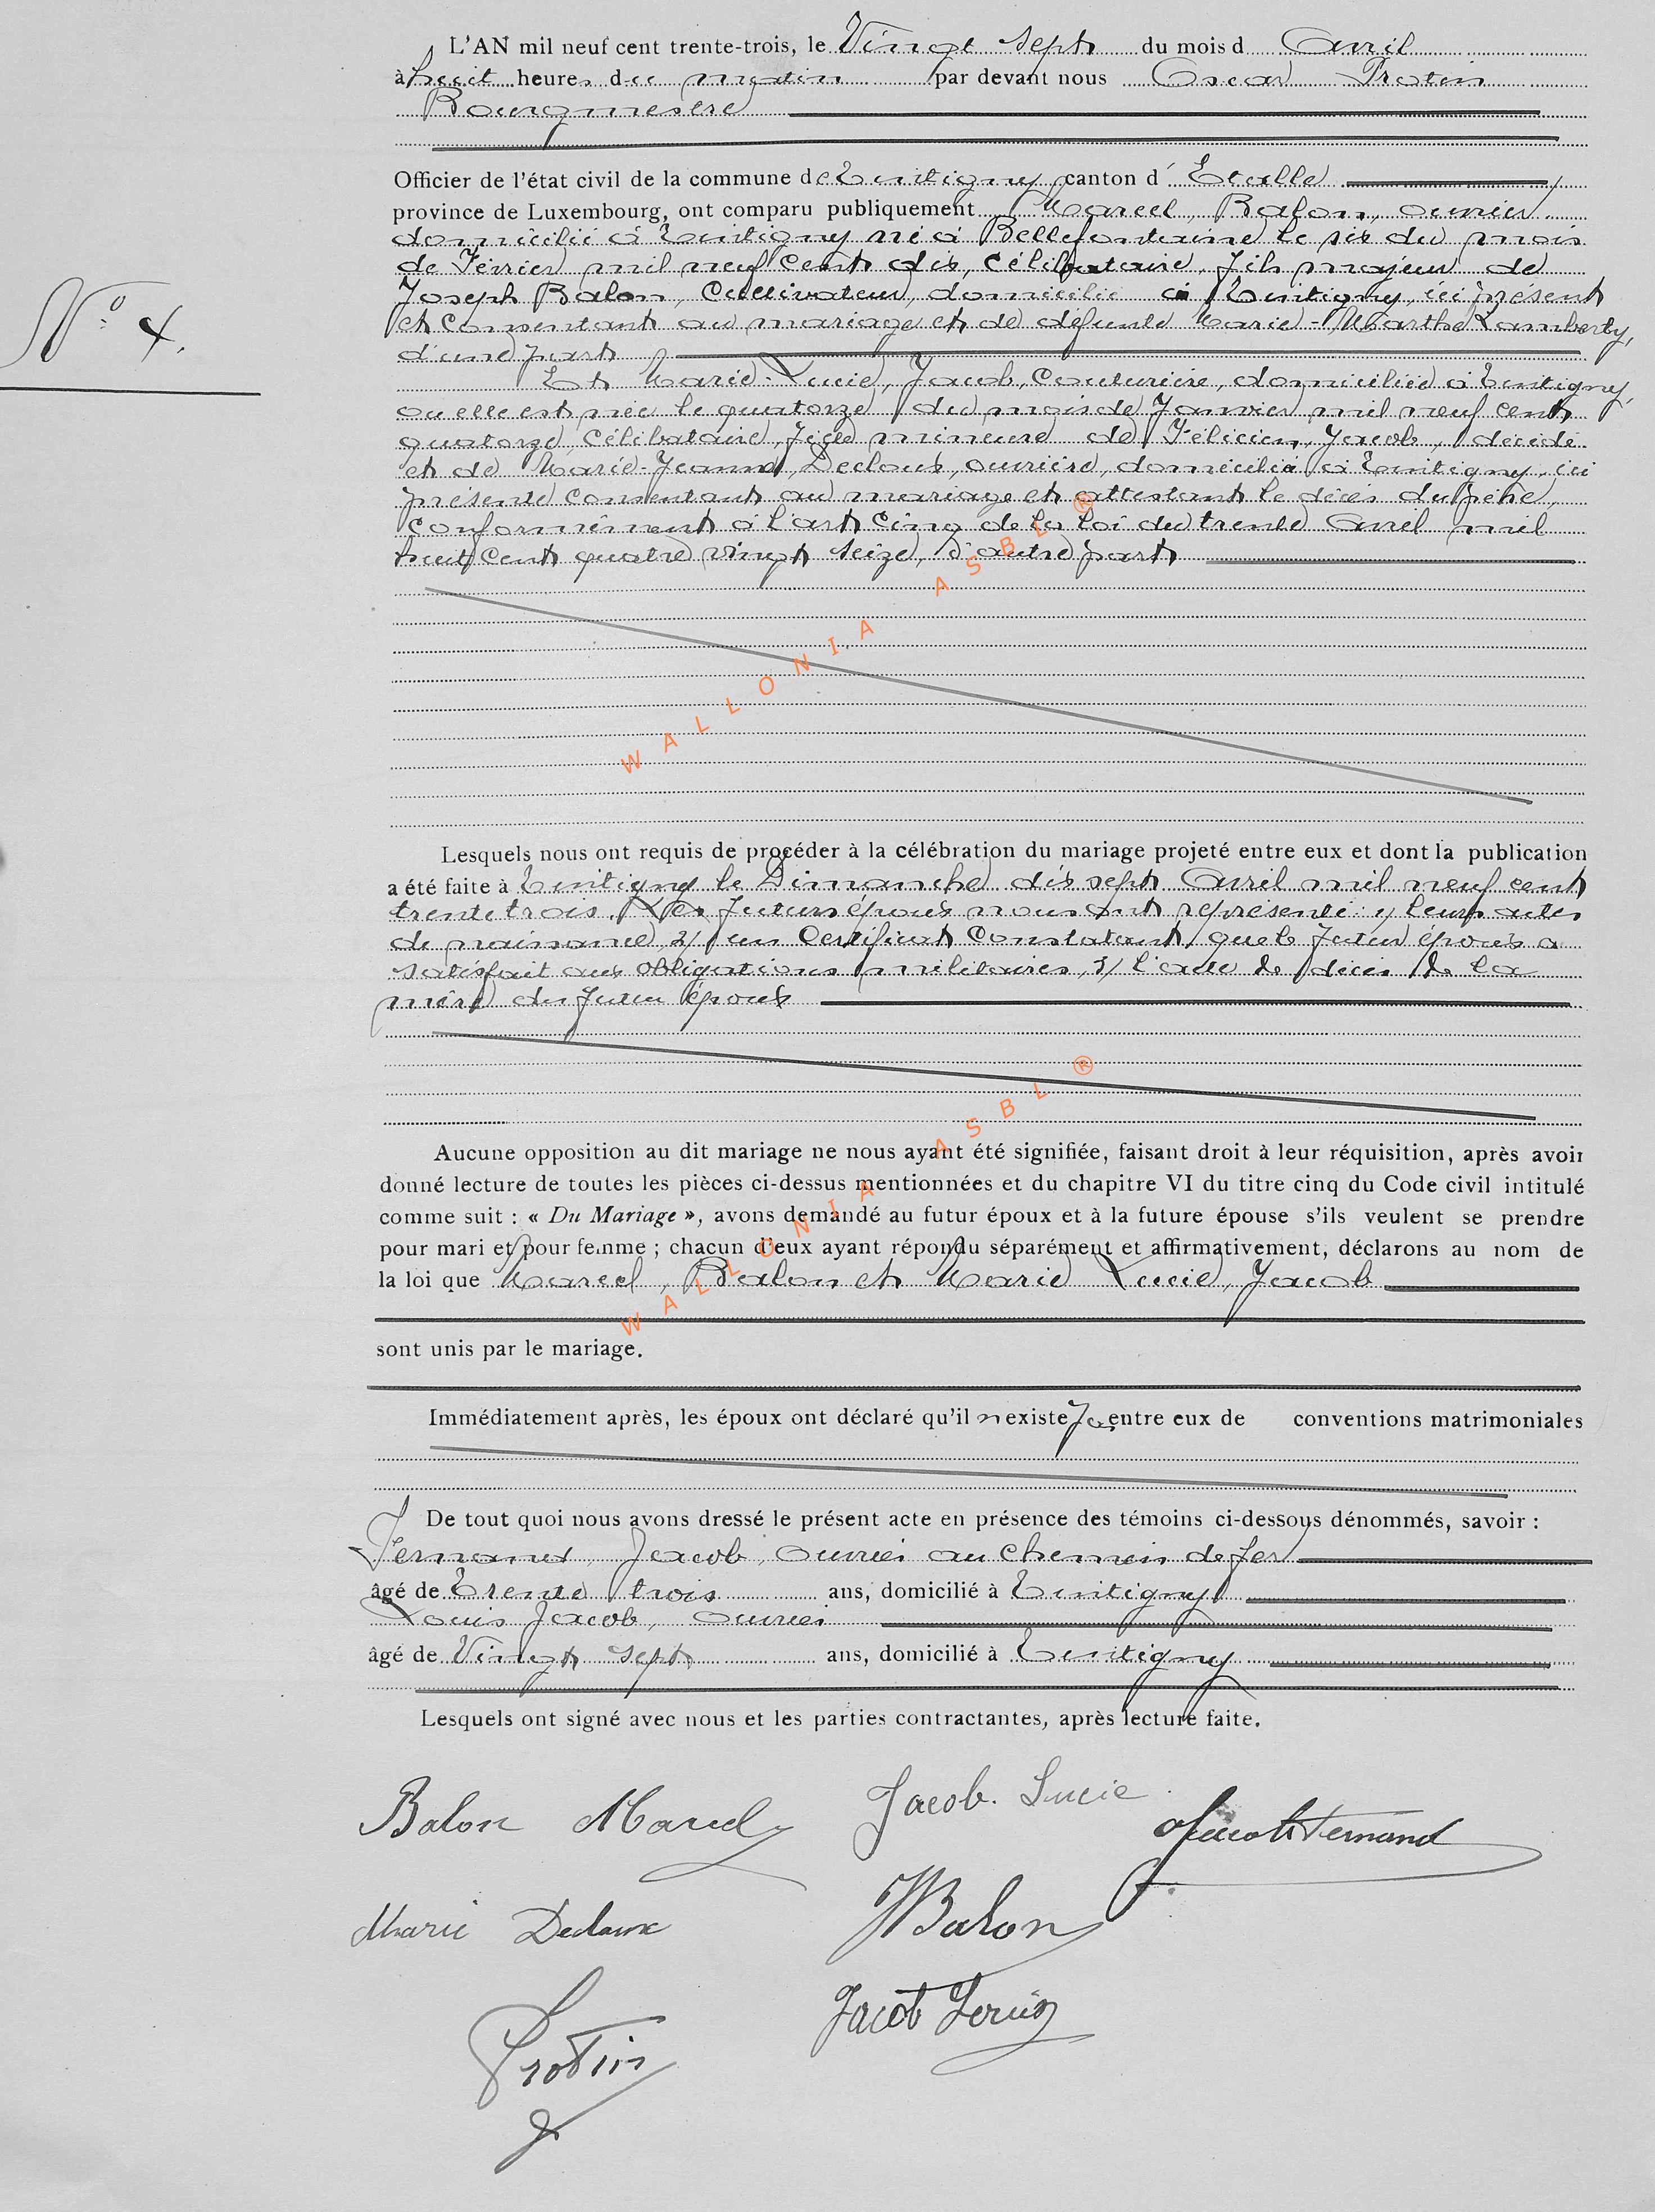 L'AN mil neuf cent trente-trois, le Vingt sept du mois d Avril
à huit heures du matin par devant nous Oscar Protin
Bourgmestre
Officier de l'état civil de la commune de Tintigny canton d' Etalle
province de Luxembourg, ont comparu publiquement Marcel, Balon, ouvrier,
domicilié à Tintigny né à Bellefontaine le six du mois
de Février mil neuf cent dix, célibataire, fils majeur de
Joseph Balon, Cultivateur, domicilié à Tintigny, ici présent
N° 4.
et consentant au mariage et de défunte Marie-Marthe Lamberty,
d'une part
Et Marie-Lucie, Jacob, Couturière, domiciliée à Tintigny,
ou elle est née le quatorze du mois de Janvier mil neuf cent
quatorze, Célibataire, fille mineure de Félicien, Jacob, décédé
et de Marie-Jeanne, Declaux, ouvrière, domiciliée à Tintigny, ici
présente consentant au mariage et attestant le décès du père,
conformément à l'art cinq de la loi du trente Avril mil
huit cent quatre vingt seize, d'autre part
WALLONIA ASBL ®
Lesquels nous ont requis de procéder à la célébration du mariage projeté entre eux et dont la publication
a été faite à Tintigny le Dimanche dix sept Avril mil neuf cent
trente trois. Les futurs époux nous ont représenté: 1/ leurs actes
de naissance, 2/ un Certificat Constatant que le futur époux a
satisfait aux obligations militaires, 3/ l'acte de décès de la
mère du futur époux
WALLONIA ASBL ®
Aucune opposition au dit mariage ne nous ayant été signifiée, faisant droit à leur réquisition, après avoir
donné lecture de toutes les pièces ci-dessus mentionnées et du chapitre VI du titre cinq du Code civil intitulé
comme suit : « Du Mariage », avons demandé au futur époux et à la future épouse s'ils veulent se prendre
pour mari et pour femme ; chacun d'eux ayant répondu séparément et affirmativement, déclarons au nom de
la loi que Marcel, Balon et Marie Lucie, Jacob
sont unis par le mariage.
Immédiatement après, les époux ont déclaré qu'il n existe pas entre eux de conventions matrimoniales
De tout quoi nous avons dressé le présent acte en présence des témoins ci-dessous dénommés, savoir :
Fernand, Jacob, ouvrier au chemin de fer
âgé de Trente trois ans, domicilié à Tintigny
Louis Jacob, ouvrier
âgé de Vingt sept ans, domicilié à Tintigny
Lesquels ont signé avec nous et les parties contractantes, après lecture faite.
Balon Marcel
Jacob. Lucie
Jacob Fernand
Marie Declaux
JBalon
Jacob Louis
Protin